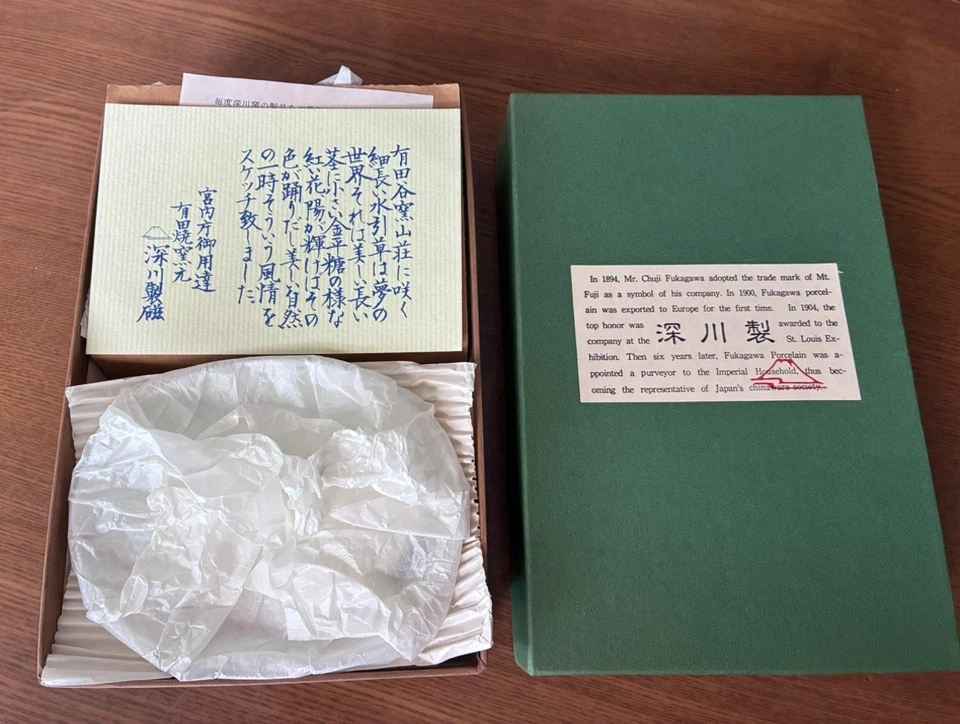 毎度深川窯の製品を
有田谷窯山荘に咲く
細長い水引草は夢の
世界それは美しい長い
茎に小さい金平糖の様な
紅い花陽が輝けばその
色が踊りだし美しい自然
の一時そういう風情を
スケッチ致しました。
宮内庁御用達
有田焼窯元
深川製磁
In 1894, Mr. Chuji Fukagawa adopted the trade mark of Mt.
Fuji as a symbol of his company. In 1900, Fukagawa porcel-
ain was exported to Europe for the first time. In 1904, the
top honor was 深川製 awarded to the
company at the St. Louis Ex-
hibition. Then six years later, Fukagawa Porcelain was a-
ppointed a purveyor to the Imperial Household, thus bec-
oming the representative of Japan's chinaware society.